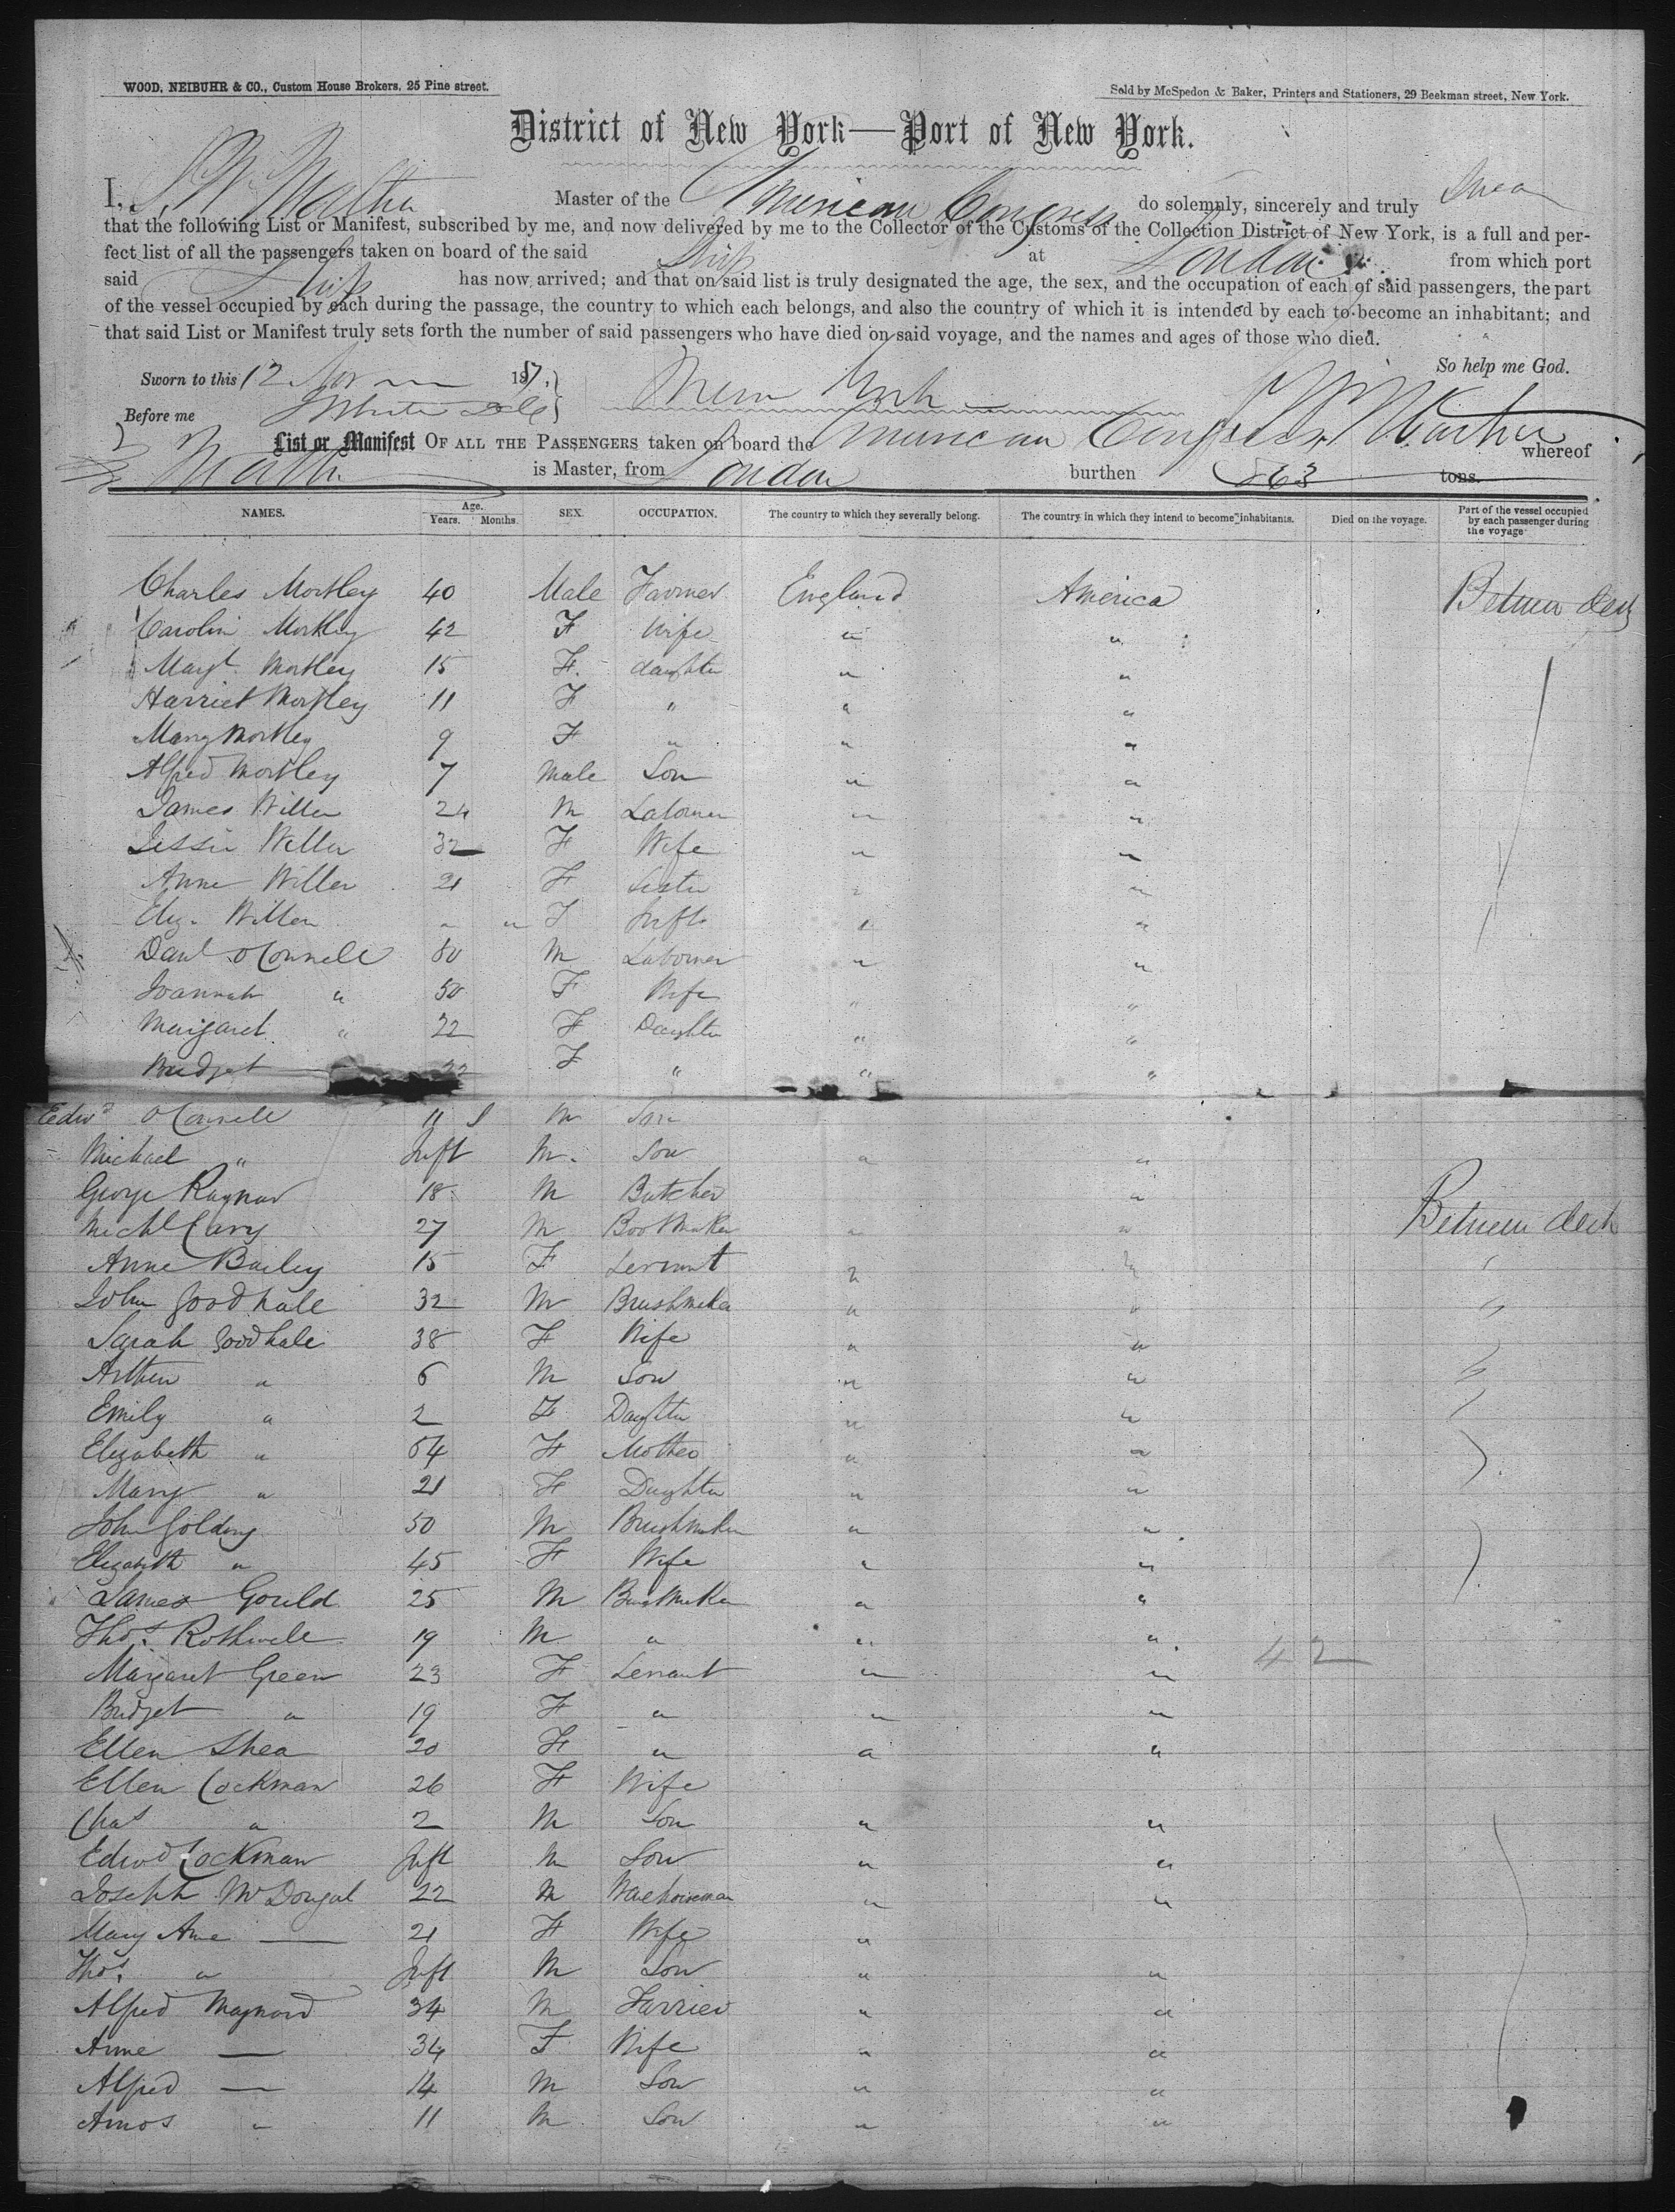 WOOD, NEIBUHR & CO., Custom House Brokers, 25 Pine street.
Sold by McSpedon & Baker, Printers and Stationers, 29 Beekman street, New York.
District of New York—Port of New York.
I, Master of the American Congress do solemnly, sincerely and truly Swear
that the following List or Manifest, subscribed by me, and now delivered by me to the Collector of the Customs of the Collection District of New York, is a full and per-
fect list of all the passengers taken on board of the said Ship at London from which port
said Ship has now arrived; and that on said list is truly designated the age, the sex, and the occupation of each of said passengers, the part
of the vessel occupied by each during the passage, the country to which each belongs, and also the country of which it is intended by each to become an inhabitant; and
that said List or Manifest truly sets forth the number of said passengers who have died on said voyage, and the names and ages of those who died.
So help me God.
Sworn to this 12 Nov 1857. New York
Before me
List or Manifest OF ALL THE PASSENGERS taken on board the American Congress whereof
is Master, from London burthen 863 tons.
NAMES. Age. Years. Months. SEX. OCCUPATION. The country to which they severally belong. The country in which they intend to become inhabitants. Died on the voyage. Part of the vessel occupied by each passenger during the voyage
Charles Mortley 40 Male Farmer England America Between deck
Carolin Mortley 42 F Wife " "
Margt. Mortley 15 F. daughter " "
Harriet Mortley 11 F " " "
Mary Mortley 9 F " " "
Alfred Mortley 7 Male Son " "
James Willer 24 M Laborer " "
Jessie Weller 32 F Wife " "
Anne Willer 21 F Sister " "
Eliz. Willer " " F Inft " "
Danl O Connell 50 M Laborer " "
Joannah " 50 F Wife " "
Margaret " 22 F Daughter " "
Bridget 22 F " " "
Edwd O Connell 11 M Son
Michael " Inft M. Son " "
George Raynor 18 M Butcher "
Michl Cary 27 M Bootmaker " " Between deck
Anne Bailey 15 F Servant " " "
John Goodhale 32 M Brushmaker " " "
Sarah Goodhale 38 F Wife " " "
Arthur " 6 M Son " " "
Emily " 2 F Daughter " "
Elizabeth " 64 F Mother " "
Mary " 21 F Daughter " "
John Golding 50 M Brushmaker " "
Elizabeth " 45 F Wife " "
James Gould 25 M " "
Thos. Rothwell 19 M " " " 42
Margaret Green 23 F Servant " "
Bridget " 19 F " " "
Ellen Shea 20 F " " "
Ellen Cockman 26 F Wife
Chas " 2 M Son " "
Edwd Cockman Inft M Son " "
Joseph McDougal 22 M Warehouseman " "
Mary Anne — 21 F Wife "
Thos. " Inft M Son " "
Alfred Maynard 34 M Farrier " "
Anne — 34 F Wife " "
Alfred — 14 M Son " "
Amos " 11 M Son " "